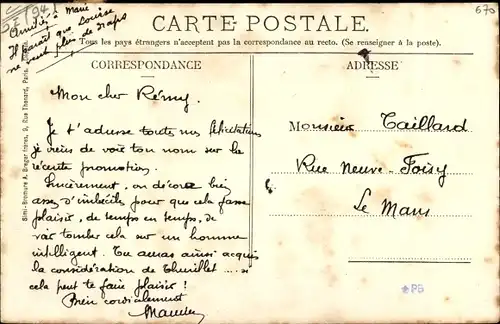 Amitiés à Marie
Il paraît que Louise
ne veut plus de draps
CARTE POSTALE.
Tous les pays étrangers n'acceptent pas la correspondance au recto. (Se renseigner à la poste).
CORRESPONDANCE
ADRESSE
Mon cher Rémy.
Je t'adresse toutes mes félicitations
je viens de voir ton nom sur la
récente promotion.
Sincèrement, on décore bien
assez d'imbéciles pour que cela fasse
plaisir, de temps en temps, de
voir tomber cela sur un homme
intelligent. Tu auras ainsi acquis
la considération de Thuillet .... si
cela peut te faire plaisir !
Bien cordialement
Monsieur Taillard
Rue Neuve-Foisy
Le Mans
Simi-Bromure A. Breger frères, 9, Rue Thenard, Paris
PB
670